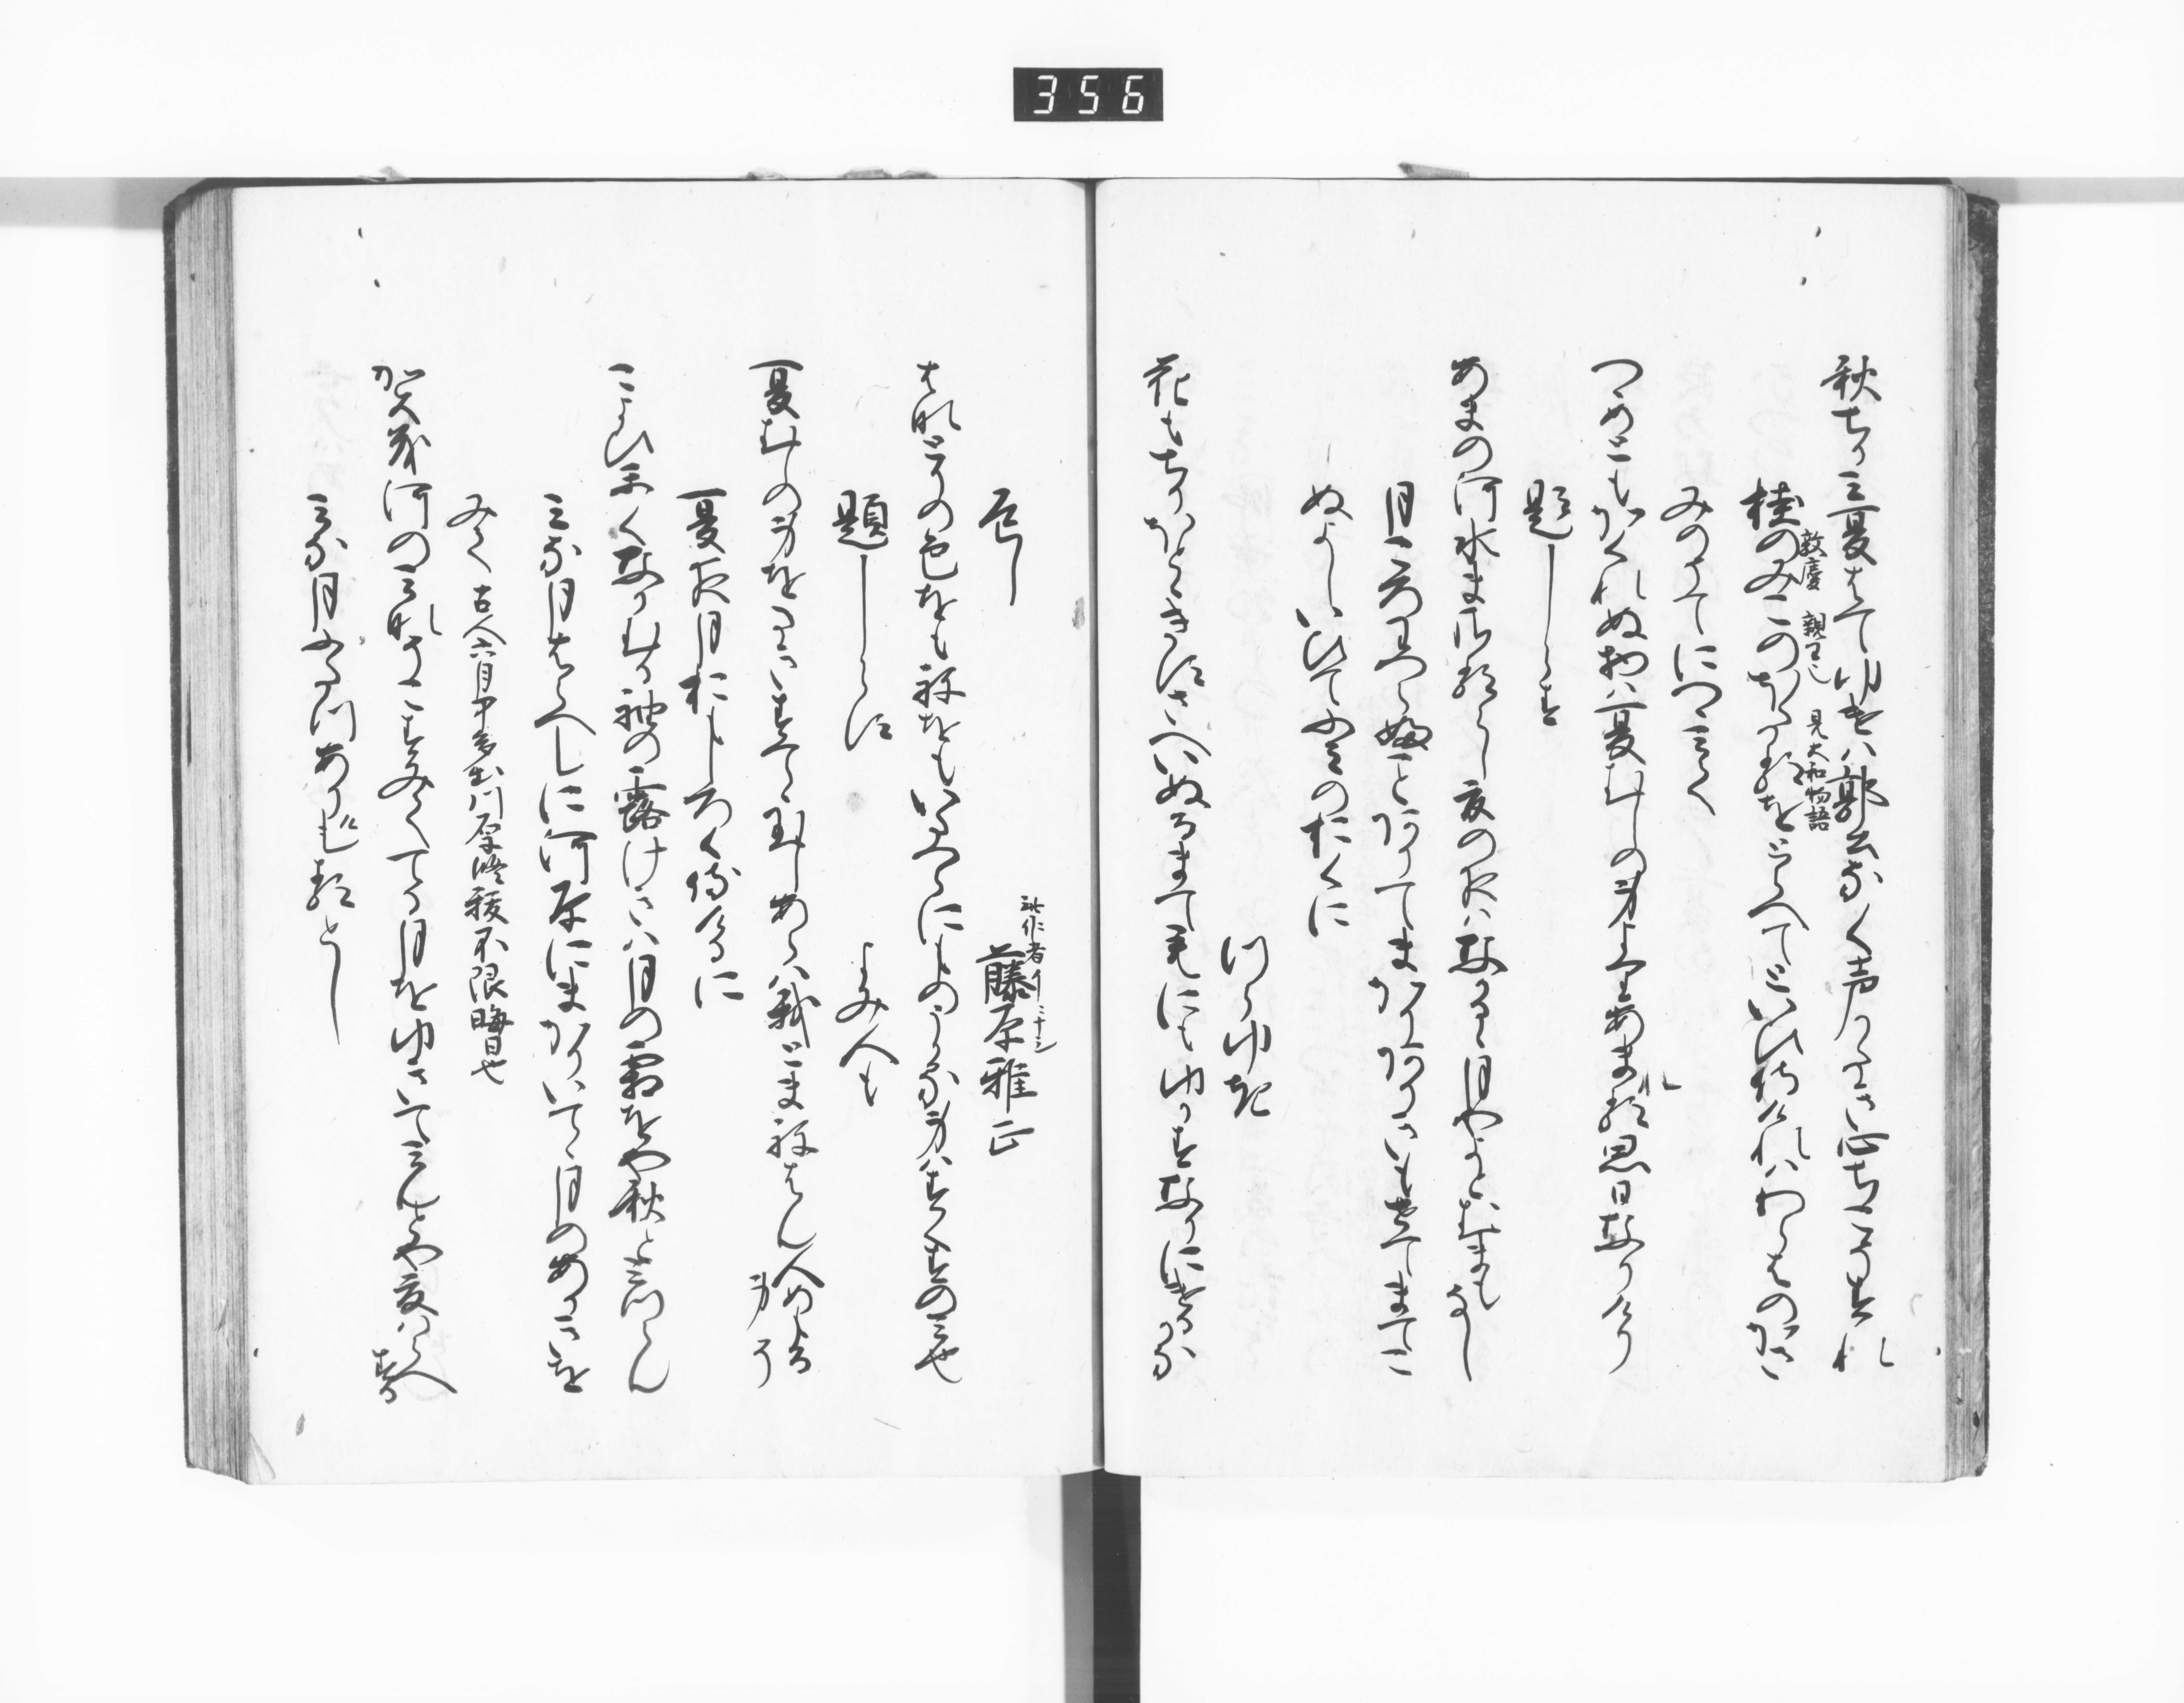 356
秋ちかみ夏はてゆけは郭公なく声かたき心ちこそすれ
敦慶親王也　見大和物語
桂のみこのほたるをとらへてといひ侍けれはわらはのかさ
みのそてにつゝみて
つゝめともかくれぬ物は夏むしの身よりあまれる思日なりけり
題しらす
あまの河水まさるらし夏の夜はなかるゝ月やよとむまもなし
月ころわつらふことありてまかりありきもせてまてこ
ぬよしいひてふみのおくに
つらゆき
花もちりほとゝきすさへいぬるまて君にもゆかすなりにけるかな
返し
此作者
藤原雅正
はなとりの色をもねをもいたつらにものうかる身はすくすのみ也
題しらす
よみ人も
夏むしの身をたきすてゝ玉しあらは我とまねはん人めもる身そ
夏夜月おもしろく侍けるに
こよひかくなかむる袖の露けきは月の霜をや秋とみつらん
みな月はらへしに河原にまかりいてゝ月のあかきを
みて
古今六月中多出川原修祓不限晦日也
賀茂河のみなそこすみててる月をゆきてみんとや夏はらへする
みな月ふたつありけるとし